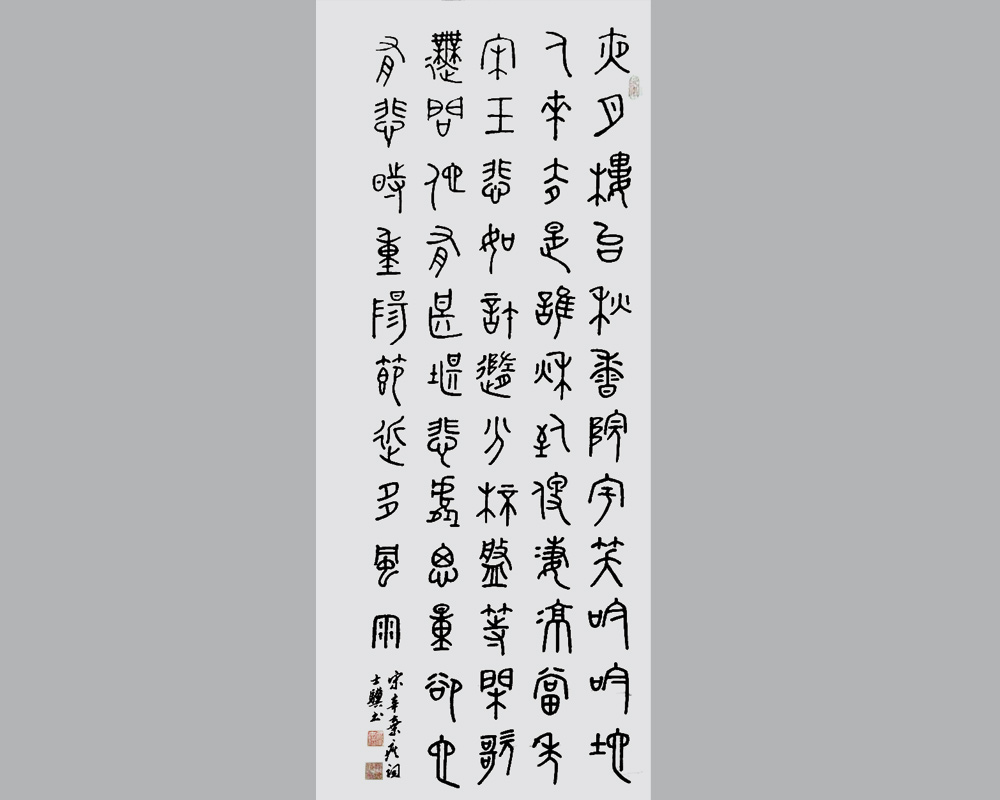 夜月樓台秋香院宇笑吟吟地
人來去是誰秋到便淒涼當年
宋玉悲如許隨分杯盤等閑歌
舞問他有甚堪悲處思量卻也
有悲時重陽節近多風雨
宋辛棄疾詞
士驥书